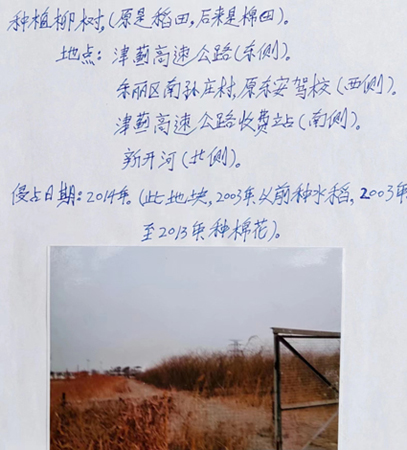 种植柳树,(原是稻田,后来是棉田)。
地点:津蓟高速公路(东侧)。
东丽区南孙庄村,原东安驾校(西侧)。
津蓟高速公路收费站(南侧)。
新开河(北侧)。
侵占日期:2014年。(此地块,2003年以前种水稻,2003年
至2013年种棉花)。